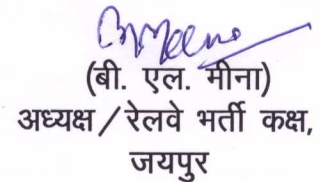 (बी. एल. मीना)
अध्यक्ष / रेलवे भर्ती कक्ष,
जयपुर